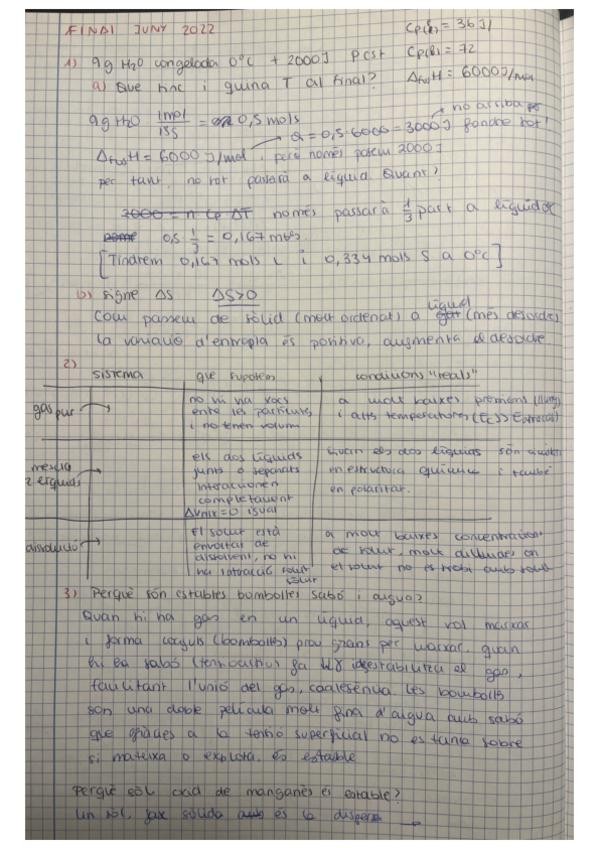 FINAL JUNY 2022
Cp(s) = 36 J/
1) 9g H2O congelada 0°C + 2000J P cst
Cp(l) = 72
a) Que tinc i quina T al final?
ΔfusH = 6000J/mol
9g H2O 1mol/18g = 0,5 mols
no arriba
Q = 0,5·6000 = 3000J fondre tot!
ΔfusH = 6000 J/mol, però només posem 2000J
per tant, no tot passarà a líquid. Quant?
2000 = n Cp ΔT només passarà 1/3 part a líquid
0,5 · 1/3 = 0,167 mols
[Tindrem 0,167 mols L i 0,334 mols S a 0°C]
b) signe ΔS ΔS>0
líquid
Com passem de sòlid (molt ordenat) a gas (més desordre)
la variació d'entropia és positiva, augmenta el desordre
2)
sistema que suposem condicions "reals"
gas pur
no hi ha xocs
entre les partícules
i no tenen volum
a molt baixes pressions
i alts temperatures (Ec >> Eatracció)
mescla
2 líquids
els dos líquids
junts o separats
interaccionen
completament
ΔVmix = 0 igual
quan els dos líquids són
en estructura química i també
en polaritat.
dissolució
El solut està
envoltat de
dissolvent, no hi
ha interacció solut
solut
a molt baixes concentracions
de solut, molt diluïdes on
el solut no es troba amb solut
3) Perquè són estables bombolles sabó i aigua?
Quan hi ha gas en un líquid, aquest vol marxar
i forma (bombolles) prou grans per marxar, quan
hi ha sabó fa desestabilitza el gas,
facilitant l'unió del gas, coalescència. Les bombolles
són una doble pel·lícula molt fina d'aigua amb sabó
que gràcies a la tensió superficial no es tanca sobre
si mateixa o explota. és estable
Perquè sòl oxid de manganès és estable?
Un sòl, fase sòlida és la dispersa →